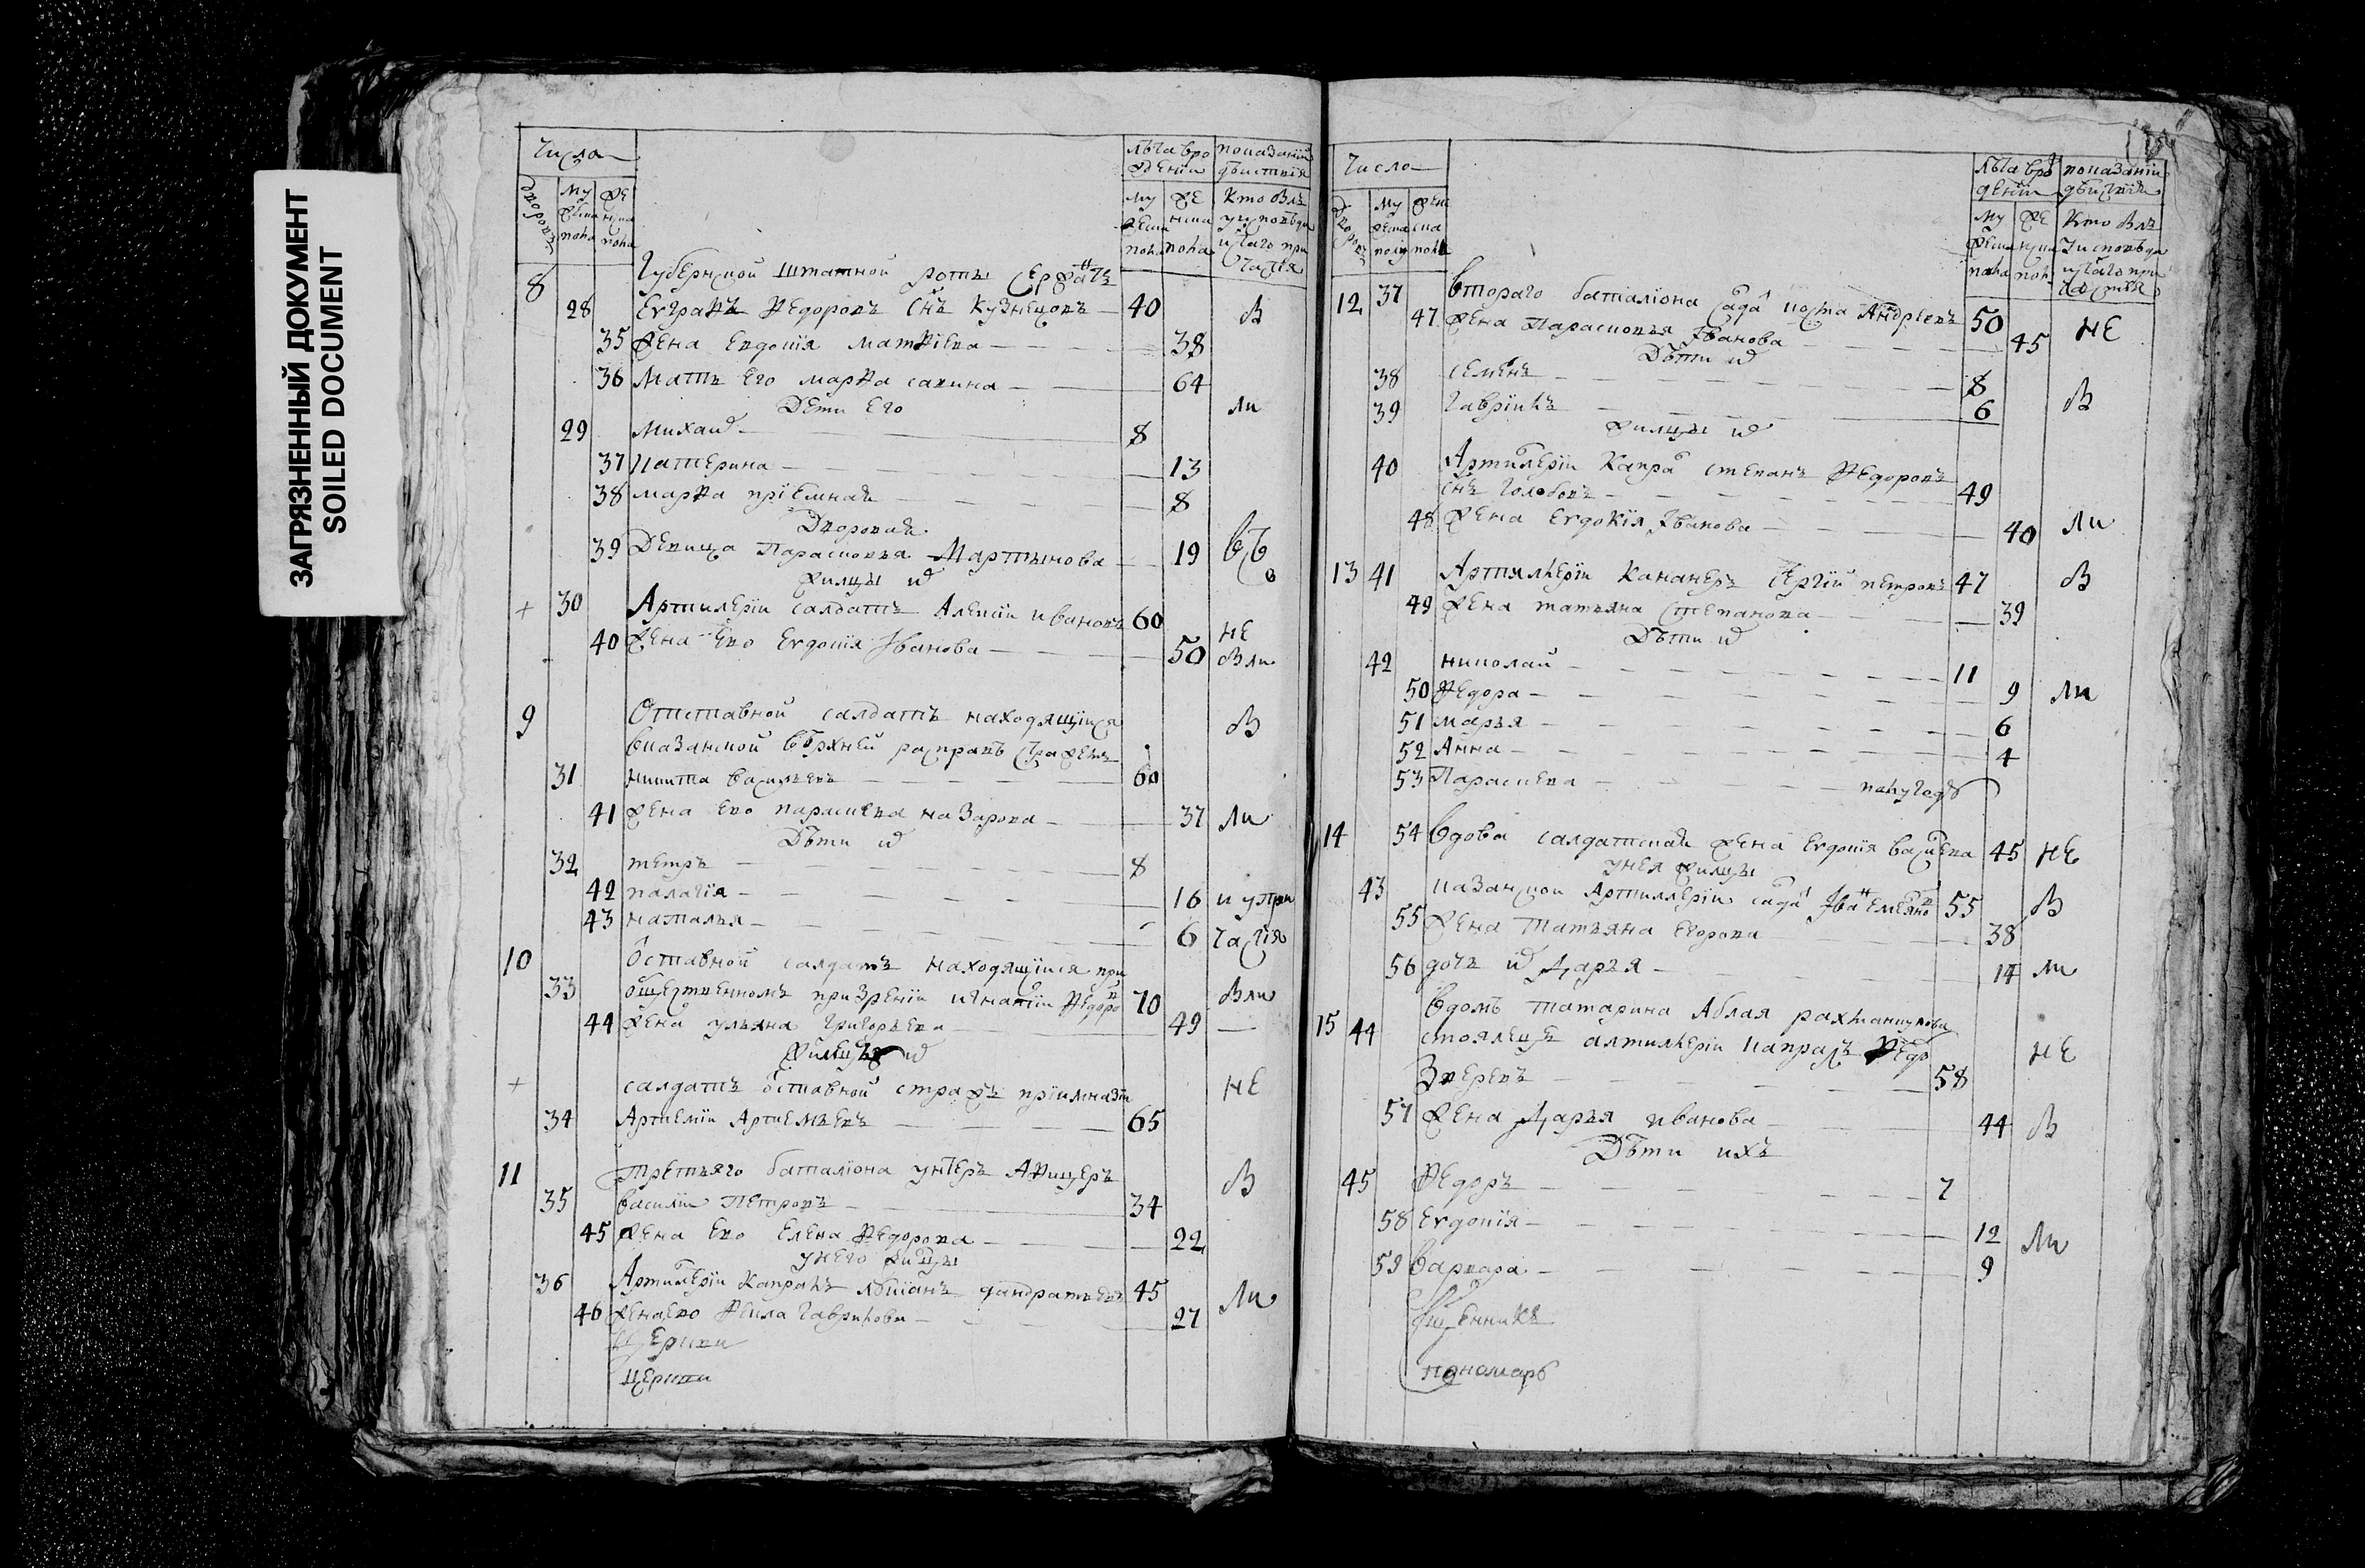 ЗАГРЯЗНЕННЫЙ ДОКУМЕНТ
SOILED DOCUMENT
Число
Дворовъ
Му
жеска
пола
Же
нска
пола
лѣта вро
жденія
показаніи
дѣиствія
Му
жеска
пола
Же
нска
пола
Кто былъ
у исповѣди
и с̃таго при
частія
8 Губернской штатной роты сержа̃тъ
28 Евграѳъ Ѳедоровъ с̃нъ Кузнецовъ 40 В
35 Жена Евдокія матѳіева 38
36 Мать его марѳа савина 64
Дети его Ли
29 михаил 8
37 катерина 13
38 марѳа пріемная 8
Дворовая
39 Девица Парасковья Мартынова 19 всѣ
Жилцы их
+ 30 Артилеріи салдатъ Алексіи ивановъ 60
40 Жена ево Евдокія Іванова 50 НЕ
В ли
9 Отставной салдатъ находящіися В
вказанской верхней расправѣ стражемъ
31 никита васильевъ 60
41 Жена ево парасковья назарова 37 Ли
Дѣти их
32 петръ 8
42 палагія 16 и у при
43 наталья 6 частія
10 ѿставной салдатъ находящіися при
33 общественномъ призреніи игнатіи Ѳедоров 70 В ли
44 Жена ульяна григорьева 49
Жилецъ их
+ салдатъ ѿставной стражъ пріимназіи НЕ
34 Артемій Артемьевъ 65
11 Третьяго баталіона унтеръ Аѳицеръ В
35 василіи Петровъ 34
45 Жена ево Елена Ѳедорова 22
унего жилцы
36 Артилеріи Капралъ 45
46 Жена ево Ѳекла гаврилова 27 Ли
церкви
церкви
Число
Дворовъ
Му
жеска
полу
Жен
ска
пола
лѣта вро
деніи
показаніи
дѣиствія
Му
жеска
пола
Же
нска
пол
Кто былъ
у исповѣди
и с̃таго при
частія
12 37 втораго баталіона салда коста Андреевъ 50 НЕ
47 Жена Парасковья Іванова 45
Дѣти их
38 семенъ 8
39 гаврилъ 6 В
Жилцы их
40 Артилеріи Капрал степанъ Ѳедоровъ
с̃нъ голобовъ 49
48 Жена Евдокія Іванова 40 Ли
13 41 Артилеріи Кананеръ Сергій петровъ 47 В
49 Жена татьяна степанова 39
Дѣти их
42 николай 11
50 Ѳедора 9 Ли
51 марья 6
52 Анна 4
53 Параскева полугоду
14 54 вдова салдатская жена Евдокія васильева 45 НЕ
унея жилцы
43 казанской Артиллеріи салда Іван Емельянов 55 В
55 Жена Татьяна егорова 38
56 дочь их Дарья 14 ли
вдомѣ татарина Аблая рахманкулова
15 44 стоялецъ алтилеріи капралъ Ѳедор НЕ
Зверевъ 58
57 Жена Дарья иванова 44 В
Дѣти ихъ
45 Ѳедоръ 7
58 Евдокія 12 Ли
59 варвара 9
Священникъ
пономарь